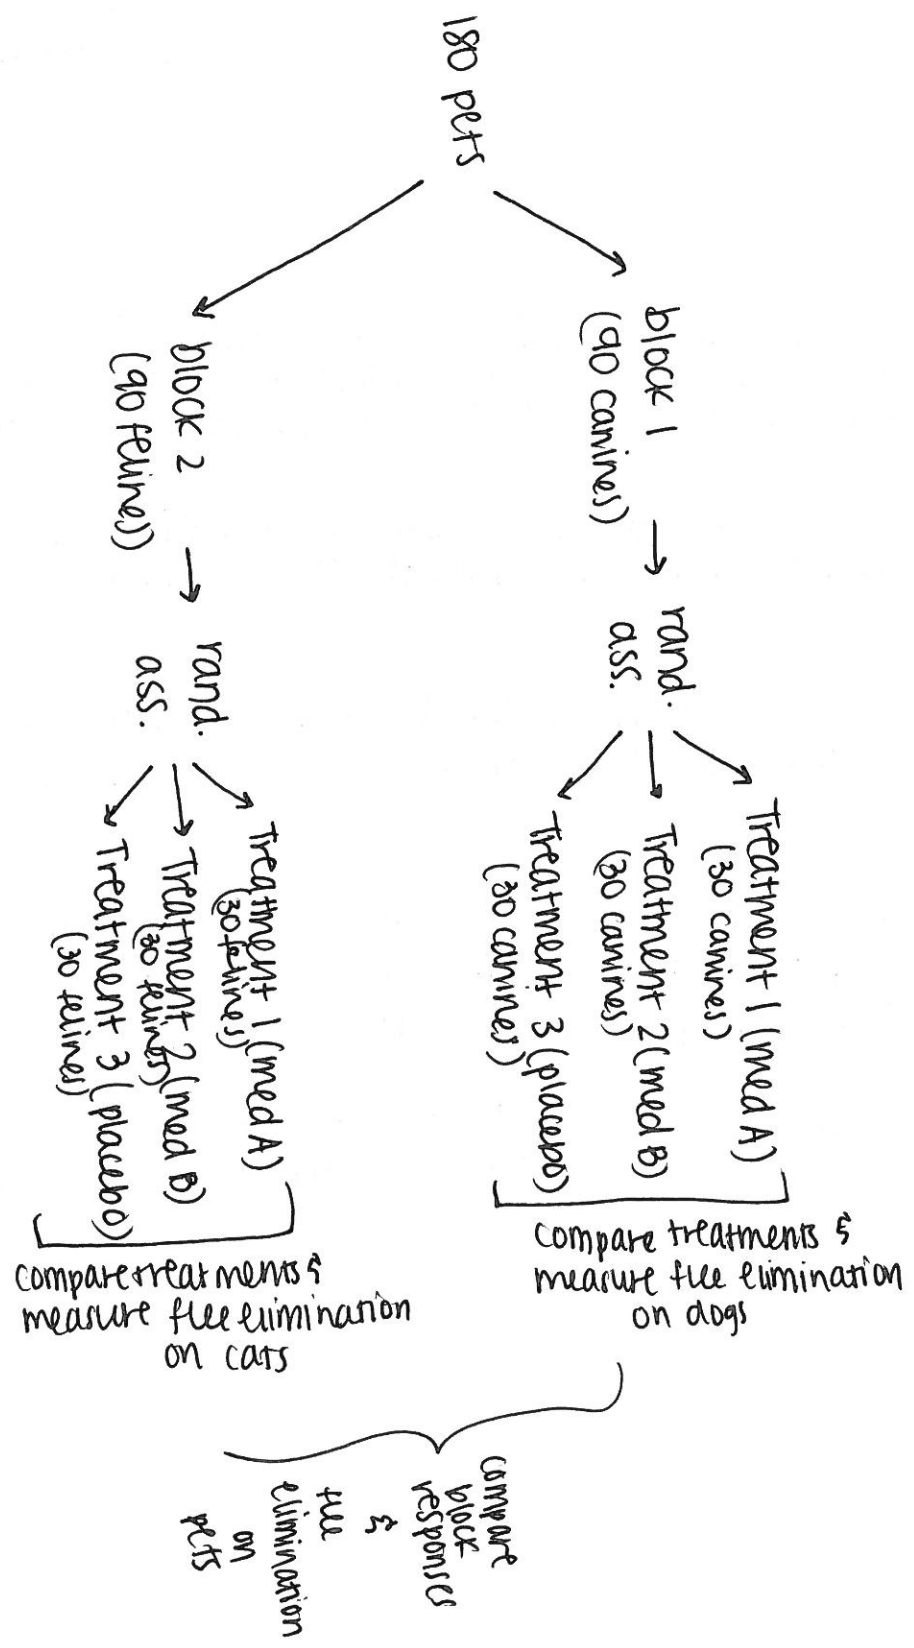 180 pets
block 1
(90 canines)
rand.
ass.
Treatment 1 (med A)
(30 canines)
Treatment 2 (med B)
(30 canines)
Treatment 3 (placebo)
(30 canines)
compare treatments &
measure flee elimination
on dogs
block 2
(90 felines)
rand.
ass.
Treatment 1 (med A)
(30 felines)
Treatment 2 (med B)
(30 felines)
Treatment 3 (placebo)
(30 felines)
compare treatments &
measure flee elimination
on cats
compare
block
responses
&
flee
elimination
on
pets